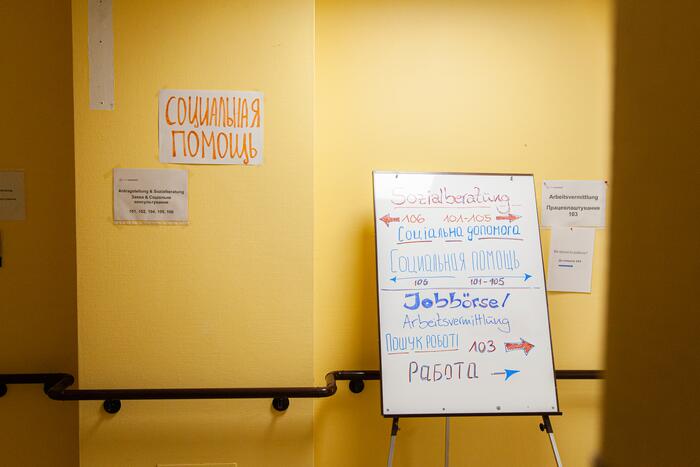 СОЦИАЛЬНАЯ
ПОМОЩЬ
Antragstellung & Sozialberatung
Заява & Соціальне
консультування
101, 102, 104, 105, 106
Sozialberatung
106 101-105
Соціальна допомога
Социальная помощь
106 101-105
Jobbörse/
Arbeitsvermittlung
Пошук роботі 103
Работа
Arbeitsvermittlung
Працевлаштування
103